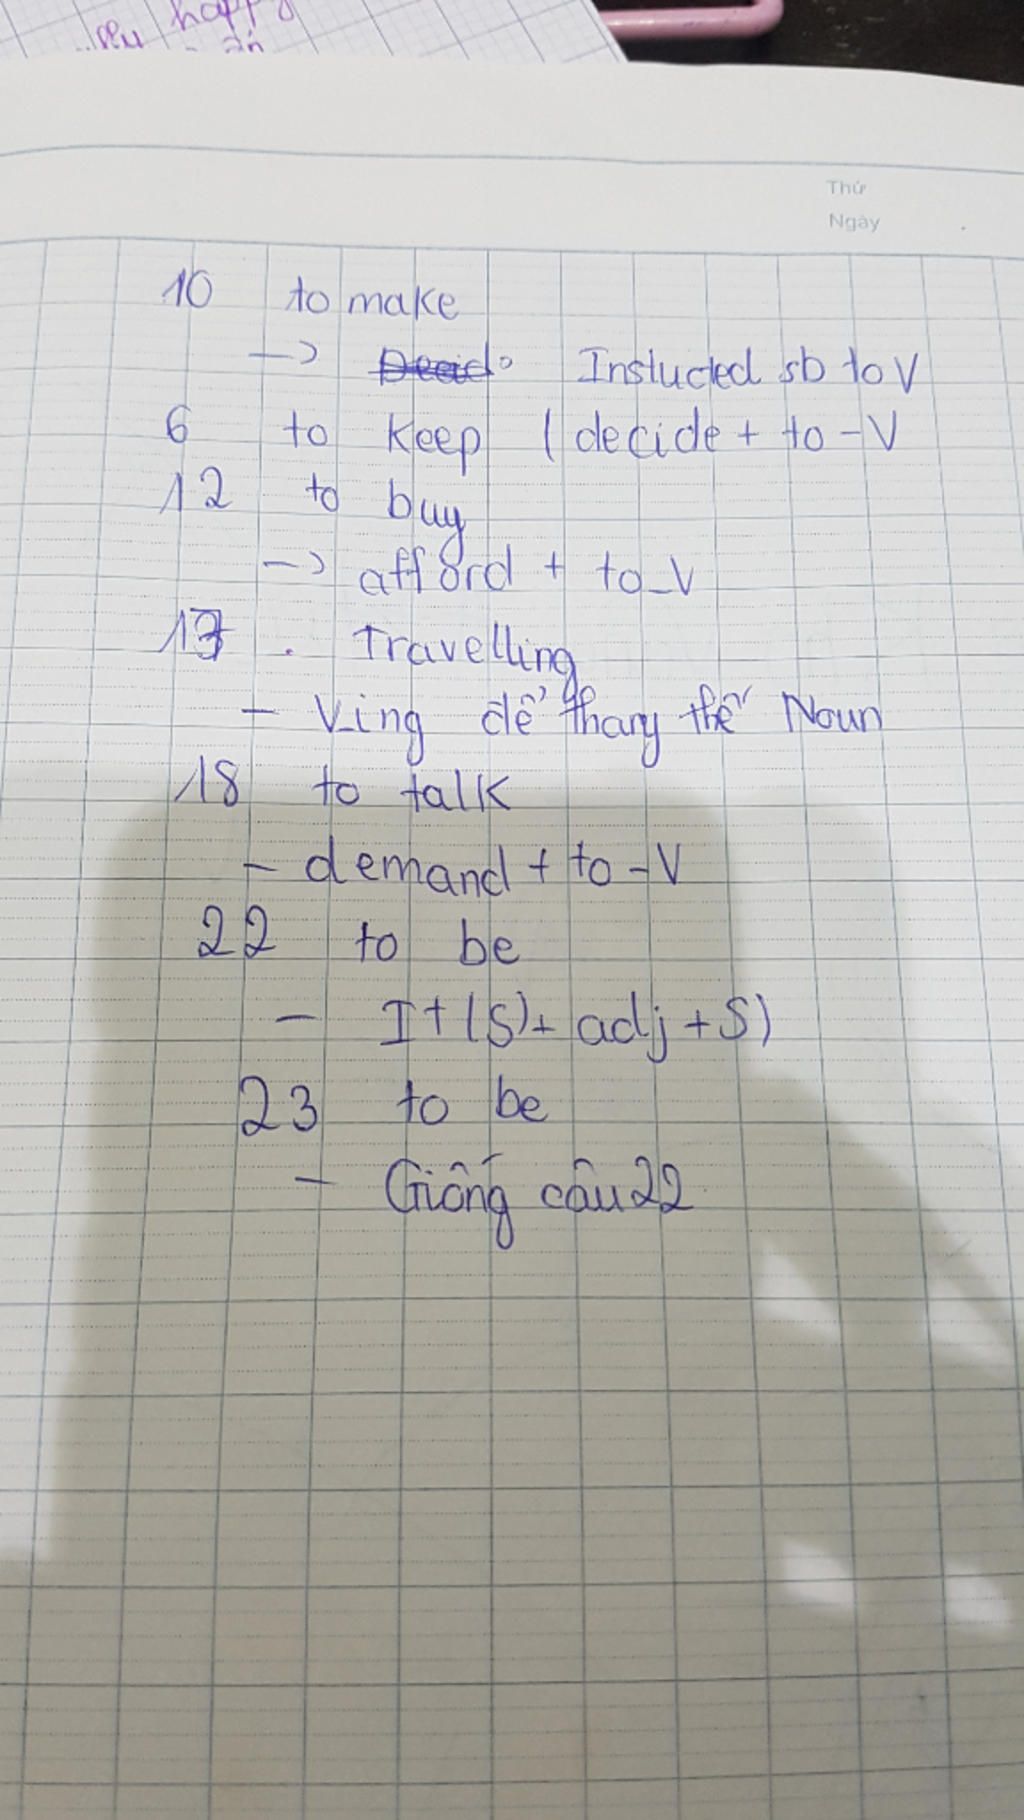 happy
Thứ
Ngày
10 to make
-> Insluded sb to V
6 to keep ( decide + to - V
12 to buy
-> afford + to - V
13 . Travelling
- Ving để thay thế Noun
18 to talk
- demand + to - V
22 to be
- I + (S) + adj + S)
23 to be
- Giống câu 22